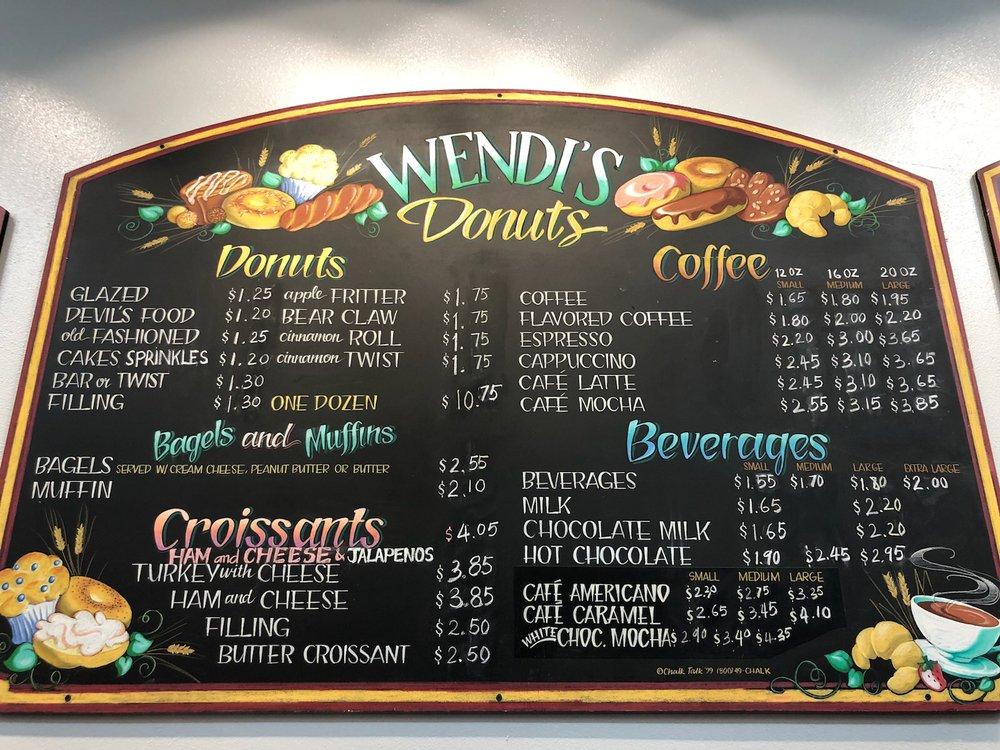 WENDI'S
Donuts
Donuts
GLAZED $1.25 apple FRITTER $1.75
DEVIL'S FOOD $1.20 BEAR CLAW $1.75
old FASHIONED $1.25 cinnamon ROLL $1.75
CAKES SPRINKLES $1.20 cinnamon TWIST $1.75
BAR or TWIST $1.30
FILLING $1.30 ONE DOZEN $10.75
Bagels and Muffins
BAGELS SERVED W/ CREAM CHEESE, PEANUT BUTTER OR BUTTER $2.55
MUFFIN $2.10
Croissants $4.05
HAM and CHEESE & JALAPENOS
TURKEY with CHEESE $3.85
HAM and CHEESE $3.85
FILLING $2.50
BUTTER CROISSANT $2.50
Coffee 12 OZ 16 OZ 20 OZ
SMALL MEDIUM LARGE
COFFEE $1.65 $1.80 $1.95
FLAVORED COFFEE $1.80 $2.00 $2.20
ESPRESSO $2.20 $3.00 $3.65
CAPPUCCINO $2.45 $3.10 $3.65
CAFÉ LATTE $2.45 $3.10 $3.65
CAFÉ MOCHA $2.55 $3.15 $3.85
Beverages
SMALL MEDIUM LARGE EXTRA LARGE
BEVERAGES $1.55 $1.70 $1.80 $2.00
MILK $1.65 $2.20
CHOCOLATE MILK $1.65 $2.20
HOT CHOCOLATE $1.90 $2.45 $2.95
SMALL MEDIUM LARGE
CAFÉ AMERICANO $2.30 $2.75 $3.35
CAFÉ CARAMEL $2.65 $3.45 $4.10
WHITE CHOC. MOCHA $2.90 $3.40 $4.35
©Chalk Talk '99 (800) 49-CHALK